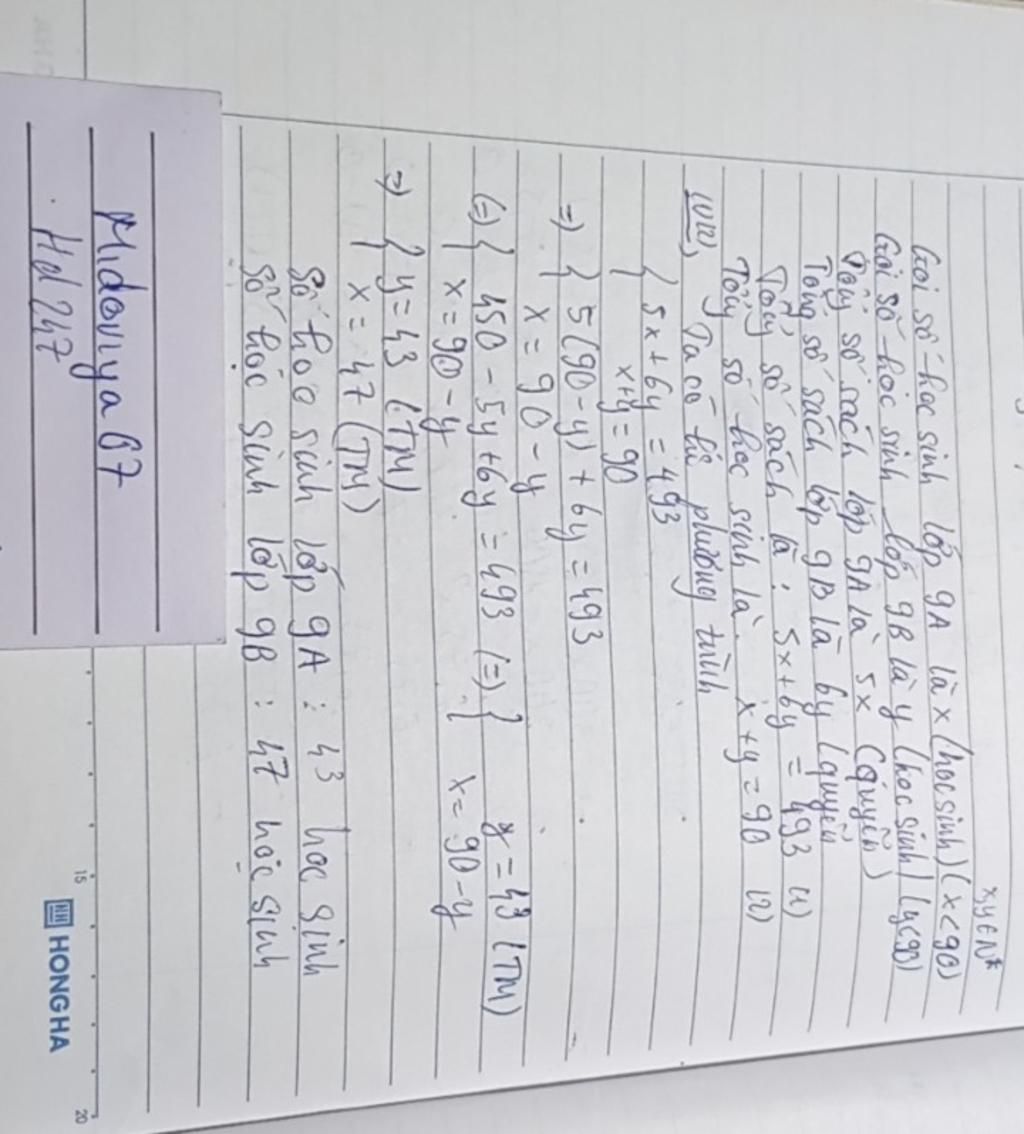 x,y ∈ N*
Gọi số học sinh lớp 9A là x (học sinh) (x<90)
Gọi số học sinh lớp 9B là y (học sinh) (y<90)
Tổng số sách lớp 9A là 5x (quyển)
Tổng số sách lớp 9B là 6y (quyển
Tổng số sách là : 5x+6y = 493 (1)
Tổng số học sinh là. x+y=90 (2)
(1)(2), Ta có hệ phương trình
{ 5x+6y = 493
x+y = 90
=> { 5(90-y) + 6y = 493
x = 90-y
(=) { 450 - 5y+6y = 493 (=) { y = 43 (TM)
x = 90-y x = 90-y
=> { y = 43 (TM)
x = 47 (TM)
Số học sinh lớp 9A : 43 học sinh
Số học sinh lớp 9B : 47 học sinh
Midoviya67
Hd247
15
20
HH HONGHA